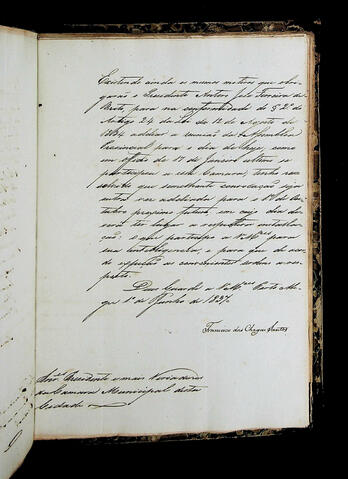 Existindo ainda os mesmos motivos que obri-
garão o Presidente Antero José Ferreira de
Brito, para na conformidade do § 2º do
Artigo 24 da Lei de 12 de Agosto de
1834 addiar a reunião da Assemblea
Provincial para o dia de hoje, como
em officio de 17 de Janeiro ultimo se
participou a essa Camara, tenho re-
solvido que semelhante convocação seja
outra vez addiada para o 1º de Ou-
tubro proximo futuro, em cujo dia de-
verá ter lugar a respectiva installa-
ção: o que participo a V. Mces para
sua intelligencia, e para que
expeção as convenientes ordens a res-
peito.
Deos Guarde a V. Mces Porto Ale-
gre 1º de Junho de 1837.
Francisco das Chagas Santos
Snres Presidente e mais Vereadores
da Camara Municipal desta
Cidade